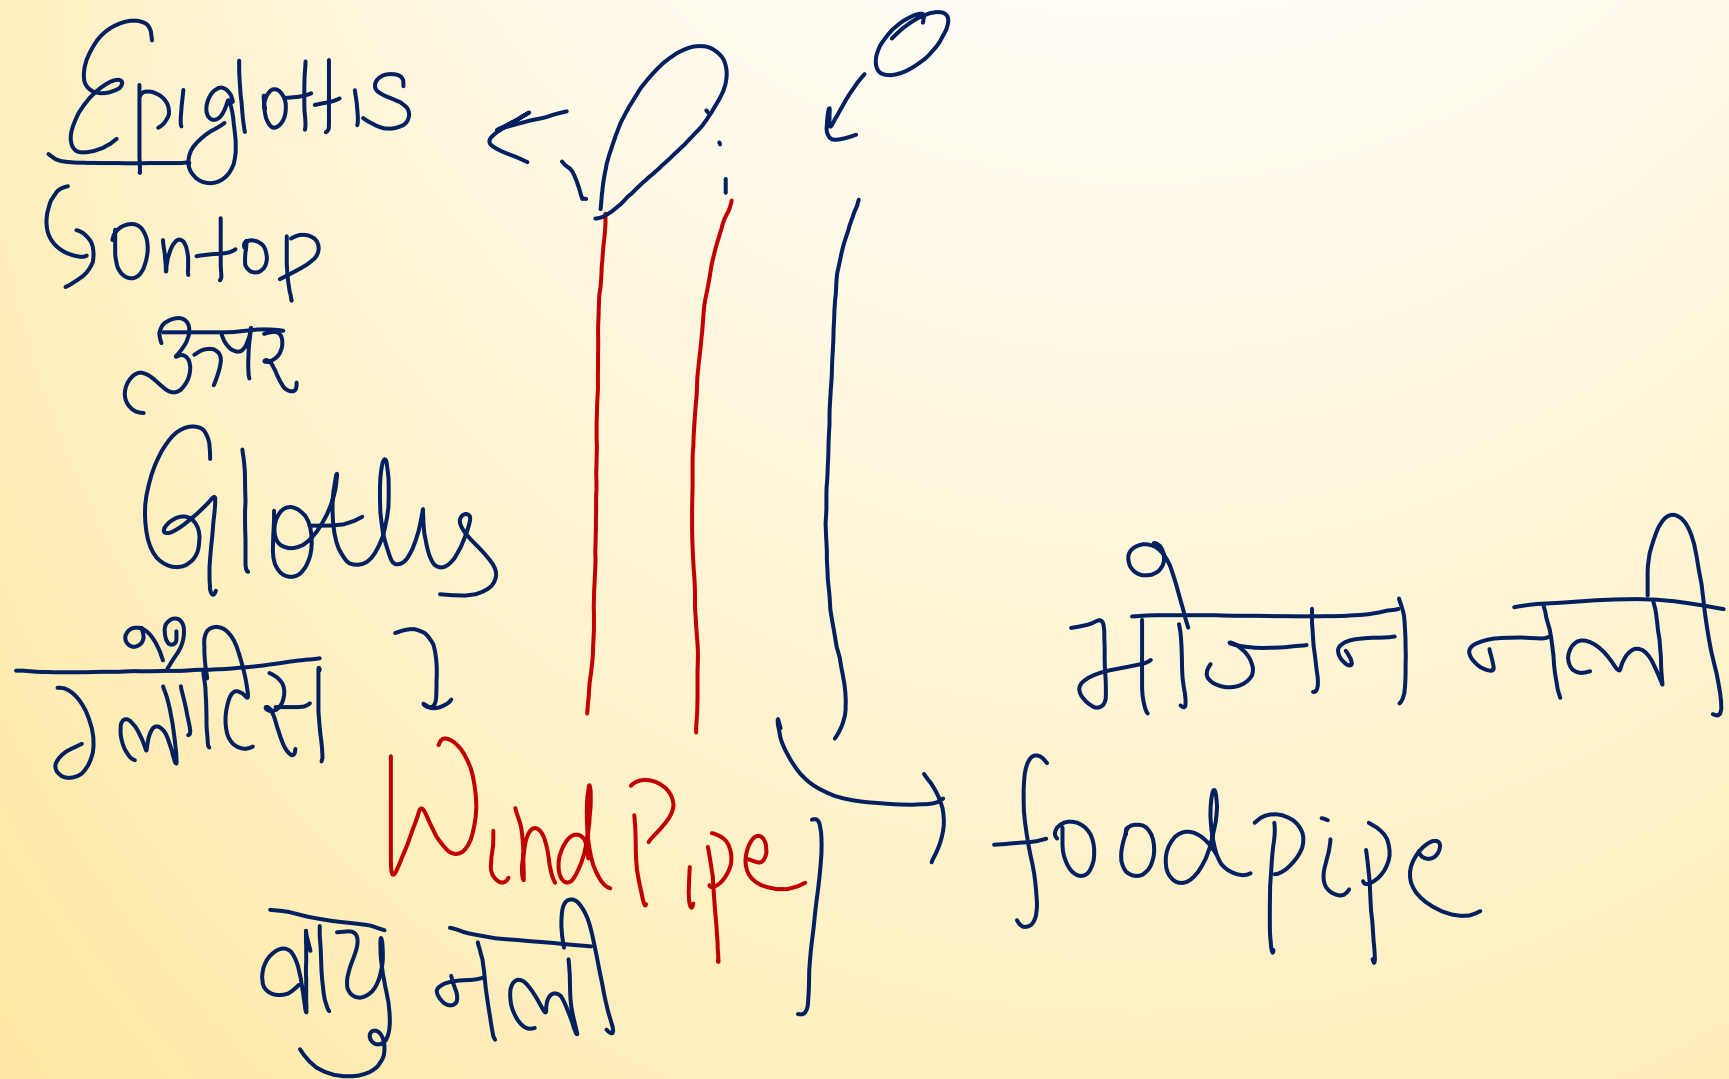 Epiglottis
ontop
ऊपर
Glottis
ग्लॉटिस
Windpipe
वायु नली
भोजन नली
foodpipe